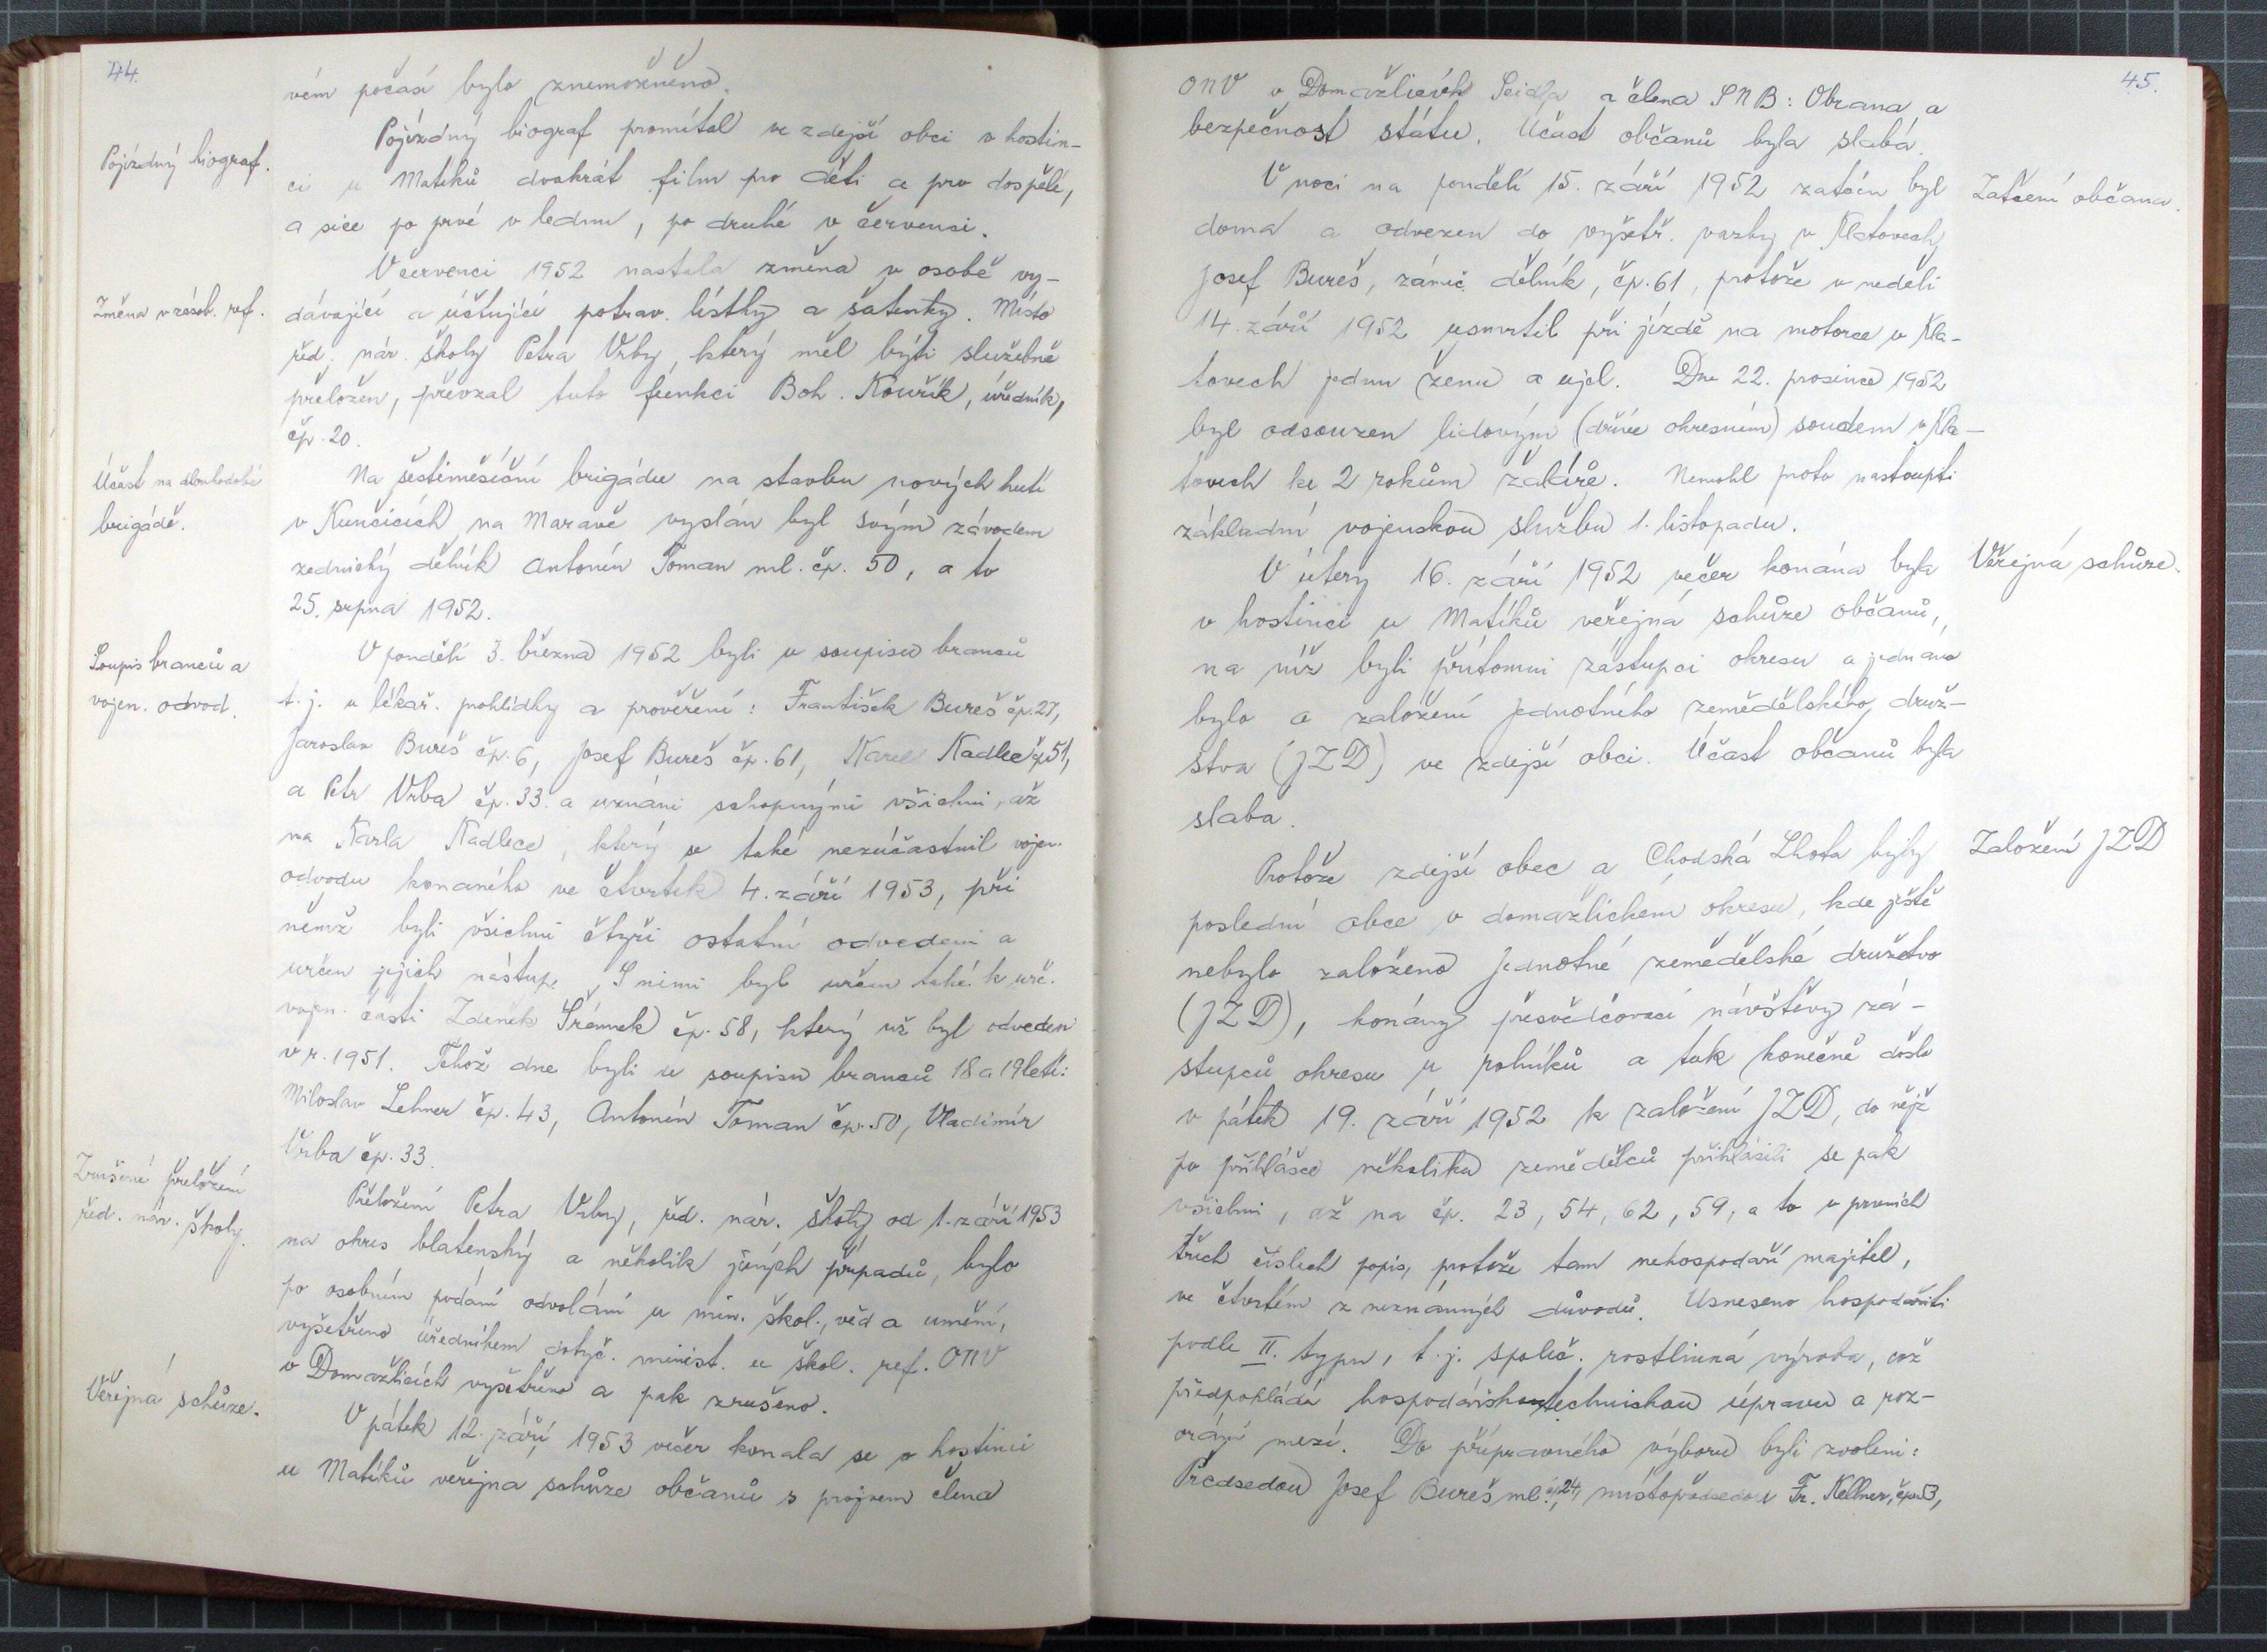 44.
vém počasí bylo znemožněno.
Pojízdný biograf.
Pojízdný biograf promítal ve zdejší obci v hostin-
ci u Matíků dvakrát film pro děti a pro dospělé,
a sice po prvé v lednu, po druhé v červenci.
Změna v zásob. ref.
V červenci 1952 nastala změna v osobě vy-
dávající a účtující potrav. lístky a šatenky. Místo
řed. nár. školy Petra Vrby, který měl býti služebně
přeložen, převzal tuto funkci Boh. Kouřík, úředník,
čp. 20.
Účast na dlouhodobé
brigádě.
Na šestiměsíční brigádu na stavbu nových hutí
v Kunčicích na Moravě vyslán byl svým závodem
zednický dělník Antonín Toman ml. čp. 50, a to
25. srpna 1952.
Soupis branců a
vojen. odvod.
V pondělí 3. března 1952 byli u soupisu branců
t. j. u lékař. prohlídky a prověření: František Bureš čp. 27,
Jaroslav Bureš čp. 6, Josef Bureš čp. 61, Karel Kadlec čp. 51,
a Petr Vrba čp. 33. a uznáni schopnými všichni, až
na Karla Kadlece, který se také nezúčastnil vojen.
odvodu konaného ve čtvrtek 4. září 1953, při
němž byli všichni čtyři ostatní odvedeni a
určen jejich nástup. S nimi byl určen také k urč.
vojen. části Zdeněk Šrámek čp. 58, který už byl odveden
v r. 1951. Téhož dne byli u soupisu branců 18 a 19letí:
Miloslav Lehner čp. 43, Antonín Toman čp. 50, Vladimír
Vrba čp. 33.
Zrušené přeložení
řed. nár. školy.
Přeložení Petra Vrby, řed. nár. školy od 1. září 1953
na okres blatenský a několik jiných případů, bylo
po osobním podání odvolání u min. škol., věd a umění,
vyšetřeno úředníkem dotyč. minist. u škol. ref. ONV
v Domažlicích vyšetřeno a pak zrušeno.
Veřejná schůze.
V pátek 12. září 1953 večer konala se v hostinci
u Matíků veřejna schůze občanů s projevem člena
45.
ONV v Domažlicích Seidla a člena SNB: Obrana a
bezpečnost státu. Účast občanů byla slabá.
Zatčení občana.
V noci na pondělí 15. září 1952 zatčen byl
doma a odvezen do vyšetř. vazby v Klatovech
Josef Bureš, zámeč. dělník, čp. 61, protože v neděli
14. září 1952 usmrtil při jízdě na motorce v Kla-
tovech jednu ženu a ujel. Dne 22. prosince 1952
byl odsouzen lidovým (dříve okresním) soudem v Kla-
tovech ke 2 rokům žaláře. Nemohl proto nastoupiti
základní vojenskou službu 1. listopadu.
Veřejná schůze.
V úterý 16. září 1952 večer konána byla
v hostinci u Matíků veřejná schůze občanů,
na níž byli přítomni zástupci okresu a jednáno
bylo o založení Jednotného zemědělského druž-
stva (JZD) ve zdejší obci. Účast občanů byla
slaba.
Založení JZD
Protože zdejší obec a Chodská Lhota byly
poslední obce v domažlickém okresu, kde ještě
nebylo založeno Jednotné zemědělské družstvo
(JZD), konány přesvědčovací návštěvy zá-
stupců okresu u rolníků a tak konečně došlo
v pátek 19. září 1952 k založení JZD, do nějž
po přihlášce několika zemědělců přihlásili se pak
všichni, až na čp. 23, 54, 62, 59, a to v prvních
třech číslech popis. protože tam nehospodaří majitel,
ve čtvrtém z neznámých důvodů. Usneseno hospodařiti
podle II. typu, t. j. společ. rostlinná výroba, což
předpokládá hospodářskou technickou úpravu a roz-
orání mezí. Do přípravného výboru byli zvoleni:
Předsedou Josef Bureš ml. čp. 24, místopředsedou Fr. Kellner, čp. 53,